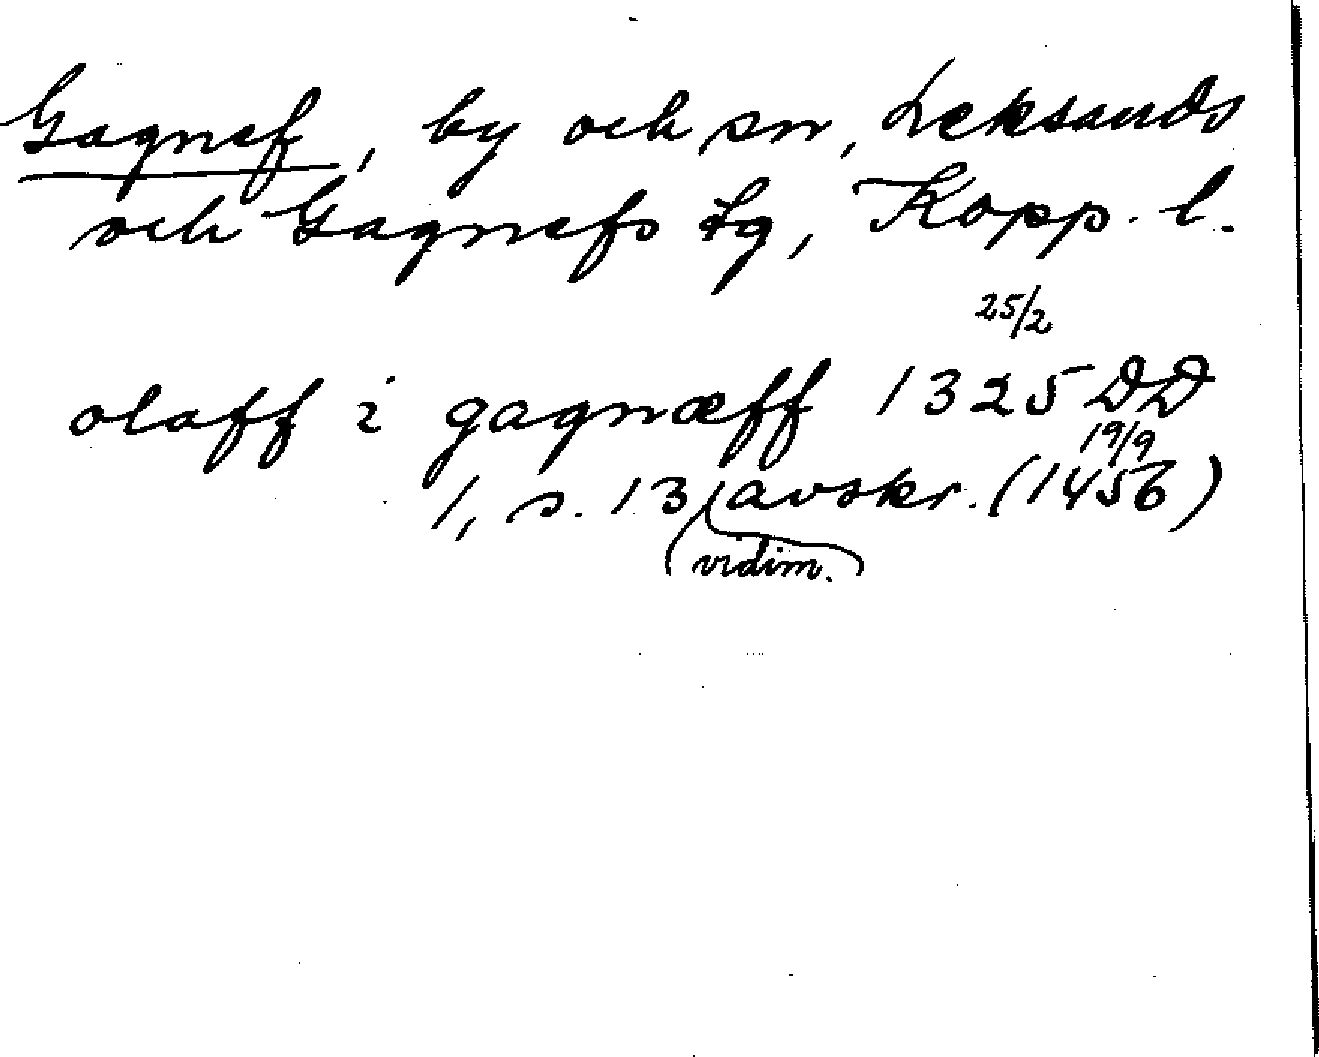 Gagnef, by och sn, Leksands
och Gagnefs tg, Kopp. l.
25/2
olaff i gagnæff 1325 DD
19/9
1, s. 13, avskr. (1456)
(vidim.)